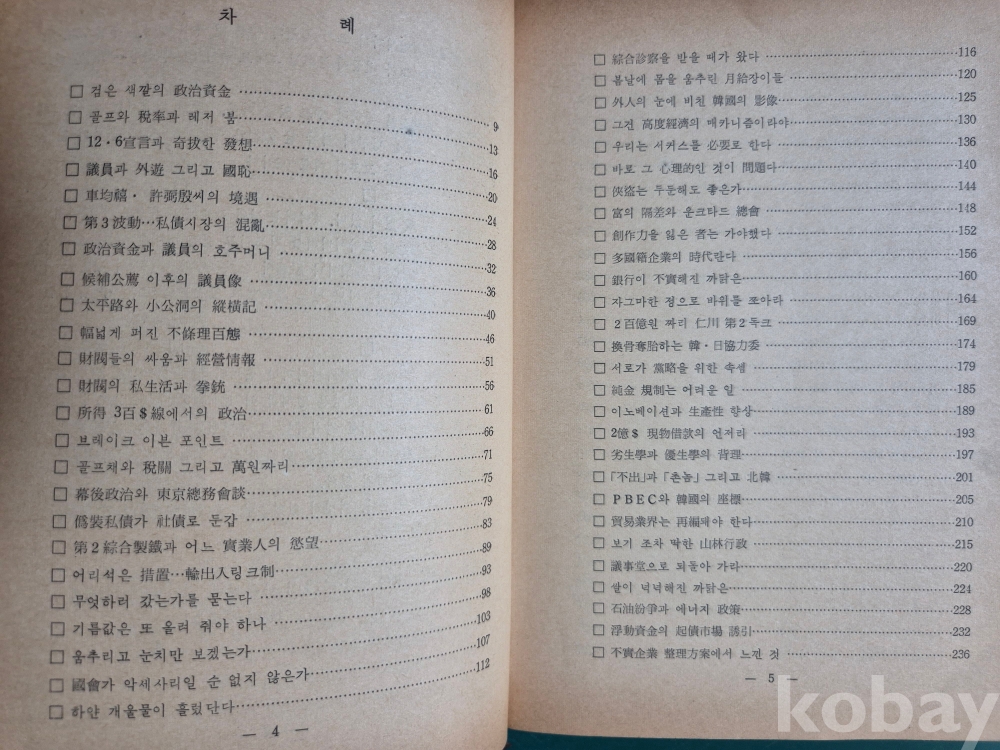 차 례
□ 검은 색깔의 政治資金 9
□ 골프와 稅率과 레저 붐 13
□ 12·6宣言과 奇拔한 發想 16
□ 議員과 外遊 그리고 國恥 20
□ 車均禧·許弼殷씨의 境遇 24
□ 第3波動…私債시장의 混亂 28
□ 政治資金과 議員의 호주머니 32
□ 候補公薦 이후의 議員像 36
□ 太平路와 小公洞의 縱橫記 40
□ 幅넓게 퍼진 不條理百態 46
□ 財閥들의 싸움과 經營情報 51
□ 財閥의 私生活과 拳銃 56
□ 所得 3百$線에서의 政治 61
□ 브레이크 이븐 포인트 66
□ 골프채와 稅關 그리고 萬원짜리 71
□ 幕後政治와 東京總務會談 75
□ 僞裝私債가 社債로 둔갑 79
□ 第2綜合製鐵과 어느 實業人의 慾望 83
□ 어리석은 措置…輸出入링크制 89
□ 무엇하러 갔는가를 묻는다 93
□ 기름값은 또 올려 줘야 하나 98
□ 움추리고 눈치만 보겠는가 103
□ 國會가 악세사리일 순 없지 않은가 107
□ 하얀 개울물이 흘렀단다 112
— 4 —
□ 綜合診察을 받을 때가 왔다 116
□ 봄날에 몸을 움추린 月給장이들 120
□ 外人의 눈에 비친 韓國의 影像 125
□ 그건 高度經濟의 메카니즘이라야 130
□ 우리는 서커스를 必要로 한다 136
□ 바로 그 心理的인 것이 問題다 140
□ 俠盜는 두둔해도 좋은가 144
□ 富의 隔差와 운크타드 總會 148
□ 創作力을 잃은 者는 가야했다 152
□ 多國籍企業의 時代란다 156
□ 銀行이 不實해진 까닭은 160
□ 자그마한 점으로 바위를 쪼아라 164
□ 2百億원 짜리 仁川 第2독크 169
□ 換骨奪胎하는 韓·日協力委 174
□ 서로가 黨略을 위한 속셈 179
□ 純金 規制는 어려운 일 185
□ 이노베이션과 生產性 향상 189
□ 2億$ 現物借款의 언저리 193
□ 劣生學과 優生學의 背理 197
□ 「不出」과 「촌놈」 그리고 北韓 201
□ PBEC와 韓國의 座標 205
□ 貿易業界는 再編돼야 한다 210
□ 보기 조차 딱한 山林行政 215
□ 議事堂으로 되돌아 가라 220
□ 쌀이 넉넉해진 까닭은 224
□ 石油紛爭과 에너지 政策 228
□ 浮動資金의 起債市場 誘引 232
□ 不實企業 整理方案에서 느낀 것 236
— 5 —
kobay